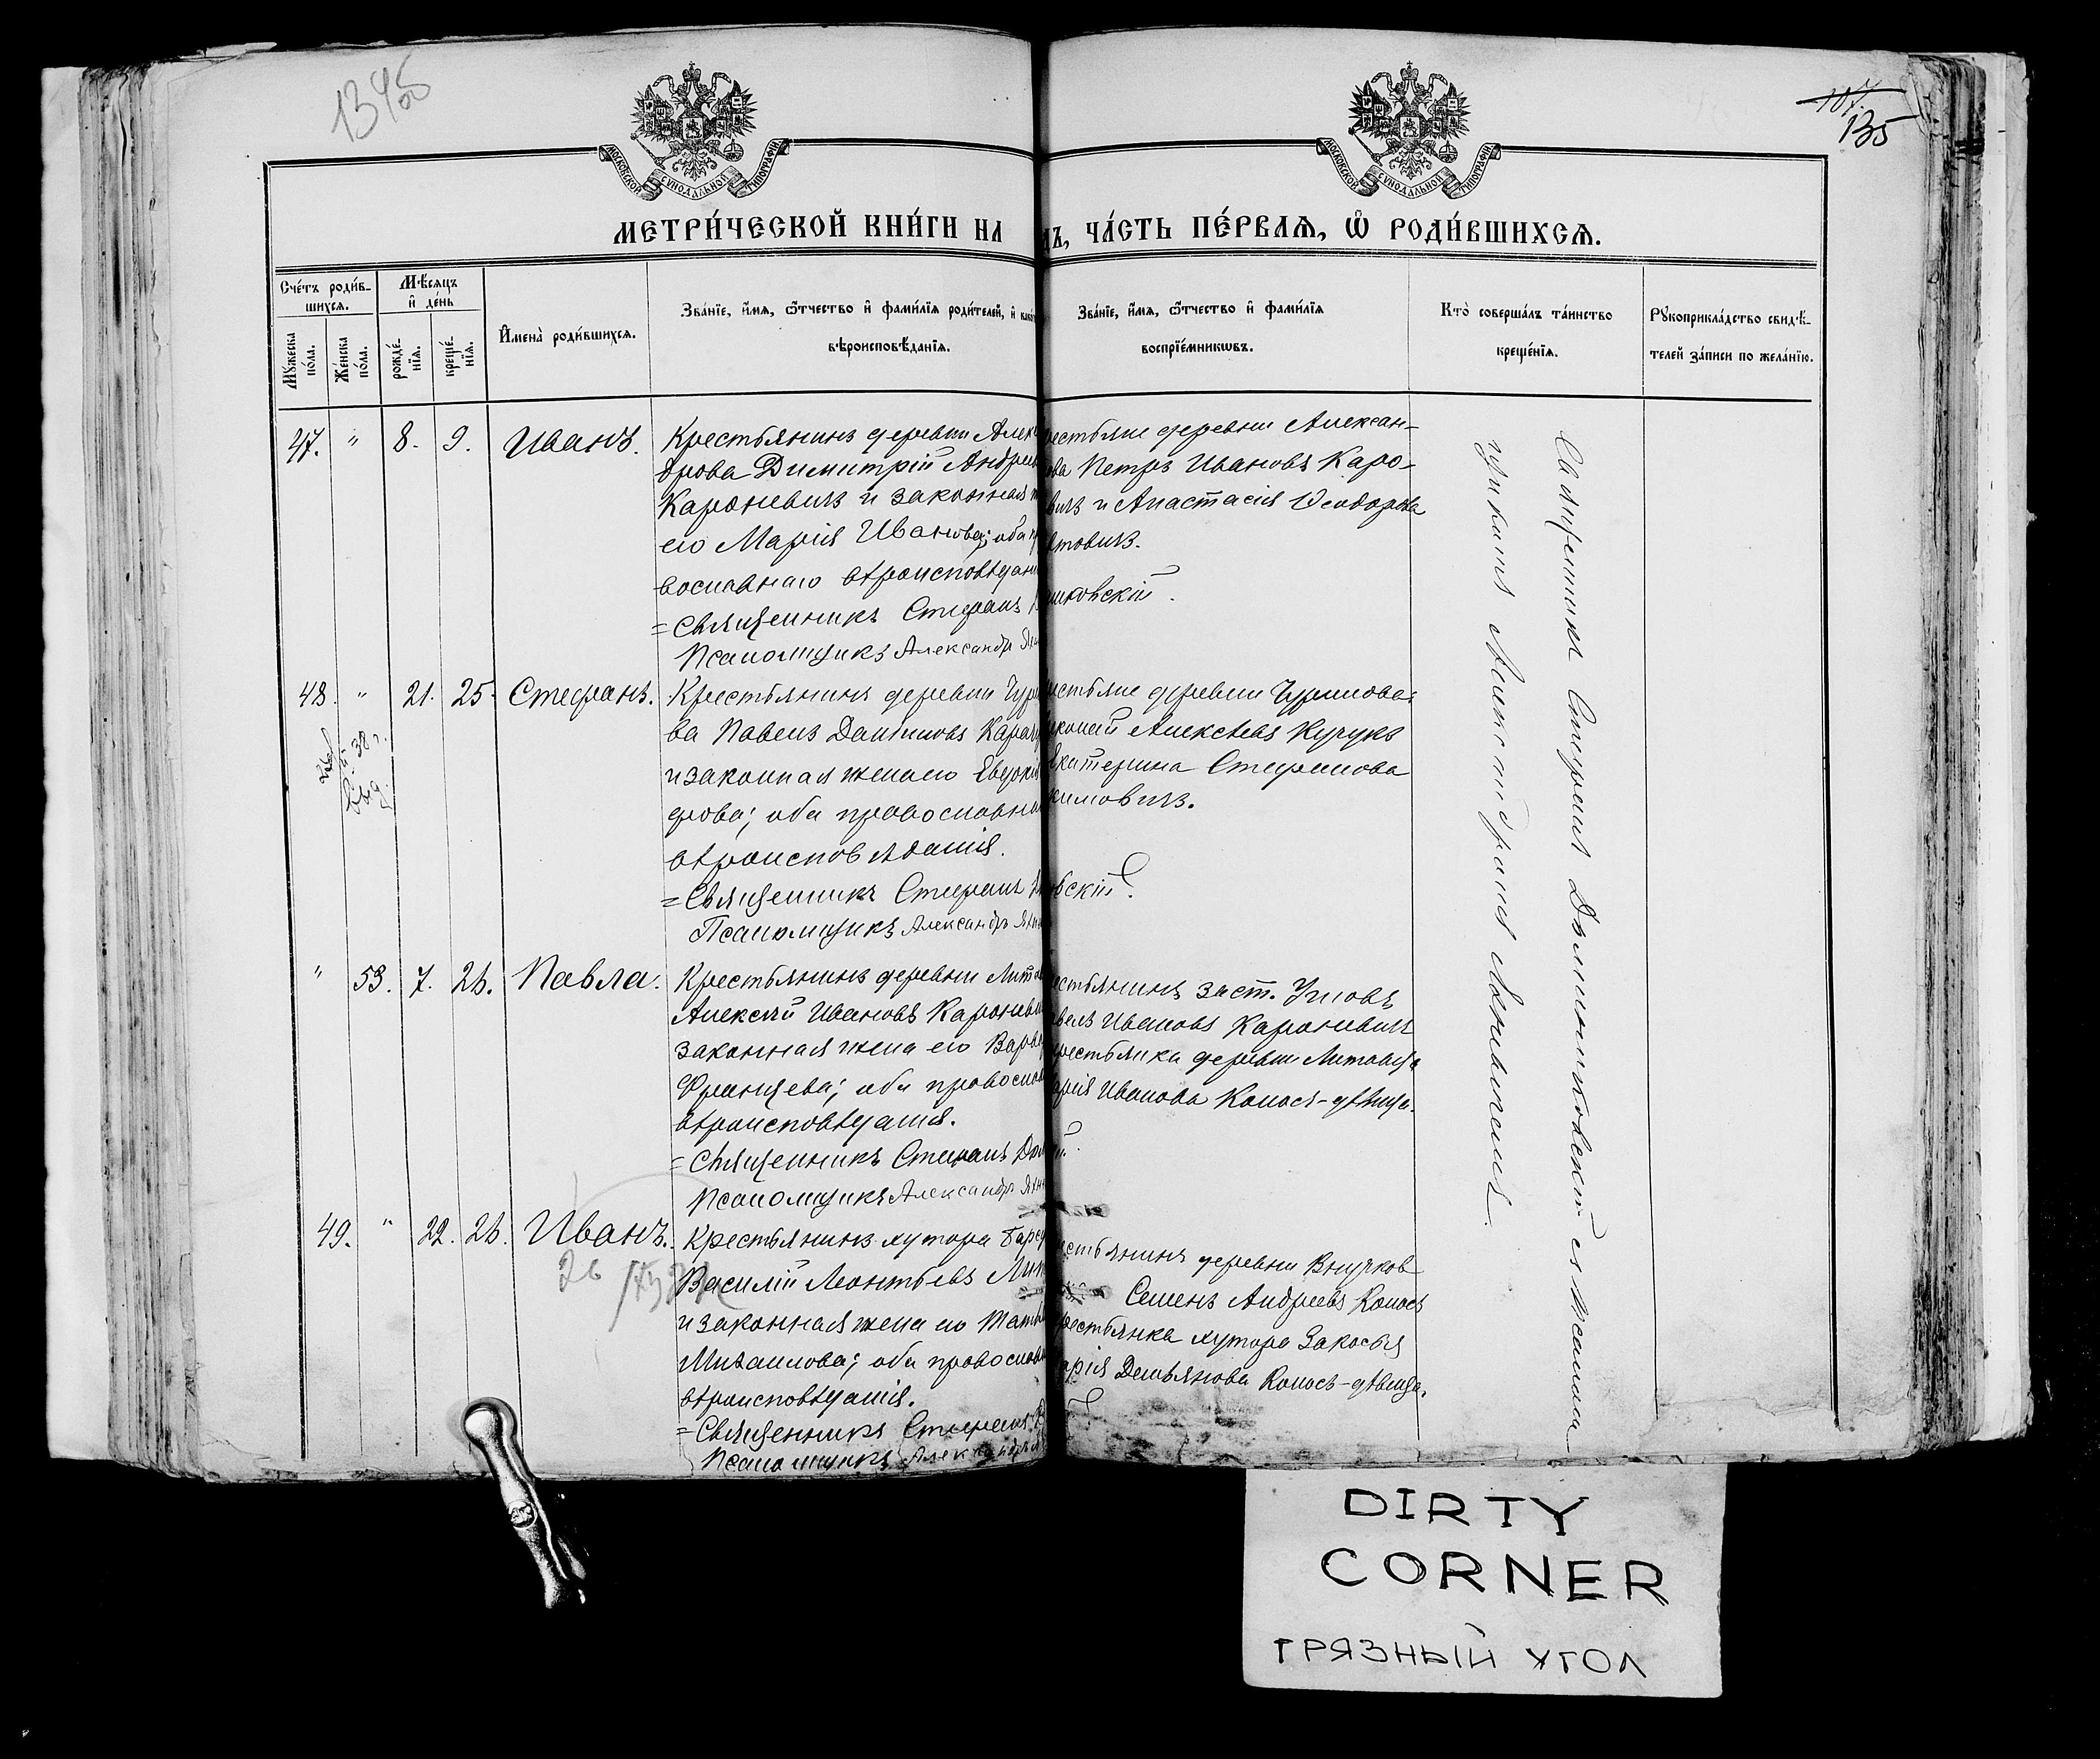 1345
107.
135
МОСКОВСКОЙ СѴНОДАЛЬНОЙ ТИПОГРАФІИ
МОСКОВСКОЙ СѴНОДАЛЬНОЙ ТИПОГРАФІИ
МЕТРИ́ЧЕСКОЙ КНИ́ГИ НА
ЧА́СТЬ ПЕ́РВАѦ, Ѡ҆ РОДИ́ВШИХСѦ.
Сче́тъ роди́в-
шихсѧ.
Мѣ́сѧцъ
и҆ де́нь
Мꙋ́жеска
по́ла.
Же́нска
по́ла.
рожде́-
нїѧ.
креще́-
нїѧ.
И҆мена̀ роди́вшихсѧ.
Зва́нїе, и҆́мѧ, ѻ҆́тчество и҆ фами́лїѧ роди́телей, и҆
вѣроисповѣ́данїѧ.
Зва́нїе, и҆́мѧ, ѻ҆́тчество и҆ фами́лїѧ
воспрїе́мникѡвъ.
Кто̀ соверша́лъ та́инство
креще́нїѧ.
Рꙋкоприкла́дство свидѣ́-
телей за́писи по жела́нїю.
47. " 8. 9. Иванъ.
Крестьянинъ деревни Алек
дрова Димитрій Андреев
Кароневичъ и законная
его Марія Иванова; оба
вославнаго вѣроисповѣдан
=Священникъ Стефанъ
Псаломщикъ Александръ
рестьяне деревни Алексан-
ова Петръ Ивановъ Каро-
вичъ и Анастасія Ѳеодорова
товичъ.
миковскій.
48. " 21. 25. Стефанъ.
Крестьянинъ деревни Чур
ва Павелъ Даниловъ Карач
и законная жена его Евдокія
рова; оба православна
вѣроисповѣданія.
=Священникъ Стефанъ
Псаломщикъ Александръ
естьяне деревни Чурилова:
колай Алексѣевъ Кучукъ
катерина Стефанова
кимовичъ.
вскій.
" 53. 7. 26. Павла.
Крестьянинъ деревни Лито
Алексѣй Ивановъ Кароневи
законная жена его Варва
Францева; оба православ
вѣроисповѣданія.
=Священникъ Стефанъ Дом
Псаломщикъ Александръ
естьянинъ заст.
велъ Ивановъ Кароневичъ
рестьянка деревни
арія Иванова Колосъ-дѣвица.
ій.
49. " 22. 26. Иванъ.
26
Крестьянинъ хутора
Василій Леонтьевъ
и законная жена его Татья
Михаилова; оба православ
вѣроисповѣданія.
=Священникъ Стефанъ
Псаломщикъ Александръ
естьянинъ деревни Внучков
Семенъ Андреевъ Колосъ
рестьянка хутора Закосья
арія Демьянова Колосъ-дѣвица.
Священникъ Стефанъ Доминиковскій съ псалом-
щикомъ Александромъ
DIRTY
CORNER
ГРЯЗНЫЙ УГОЛ